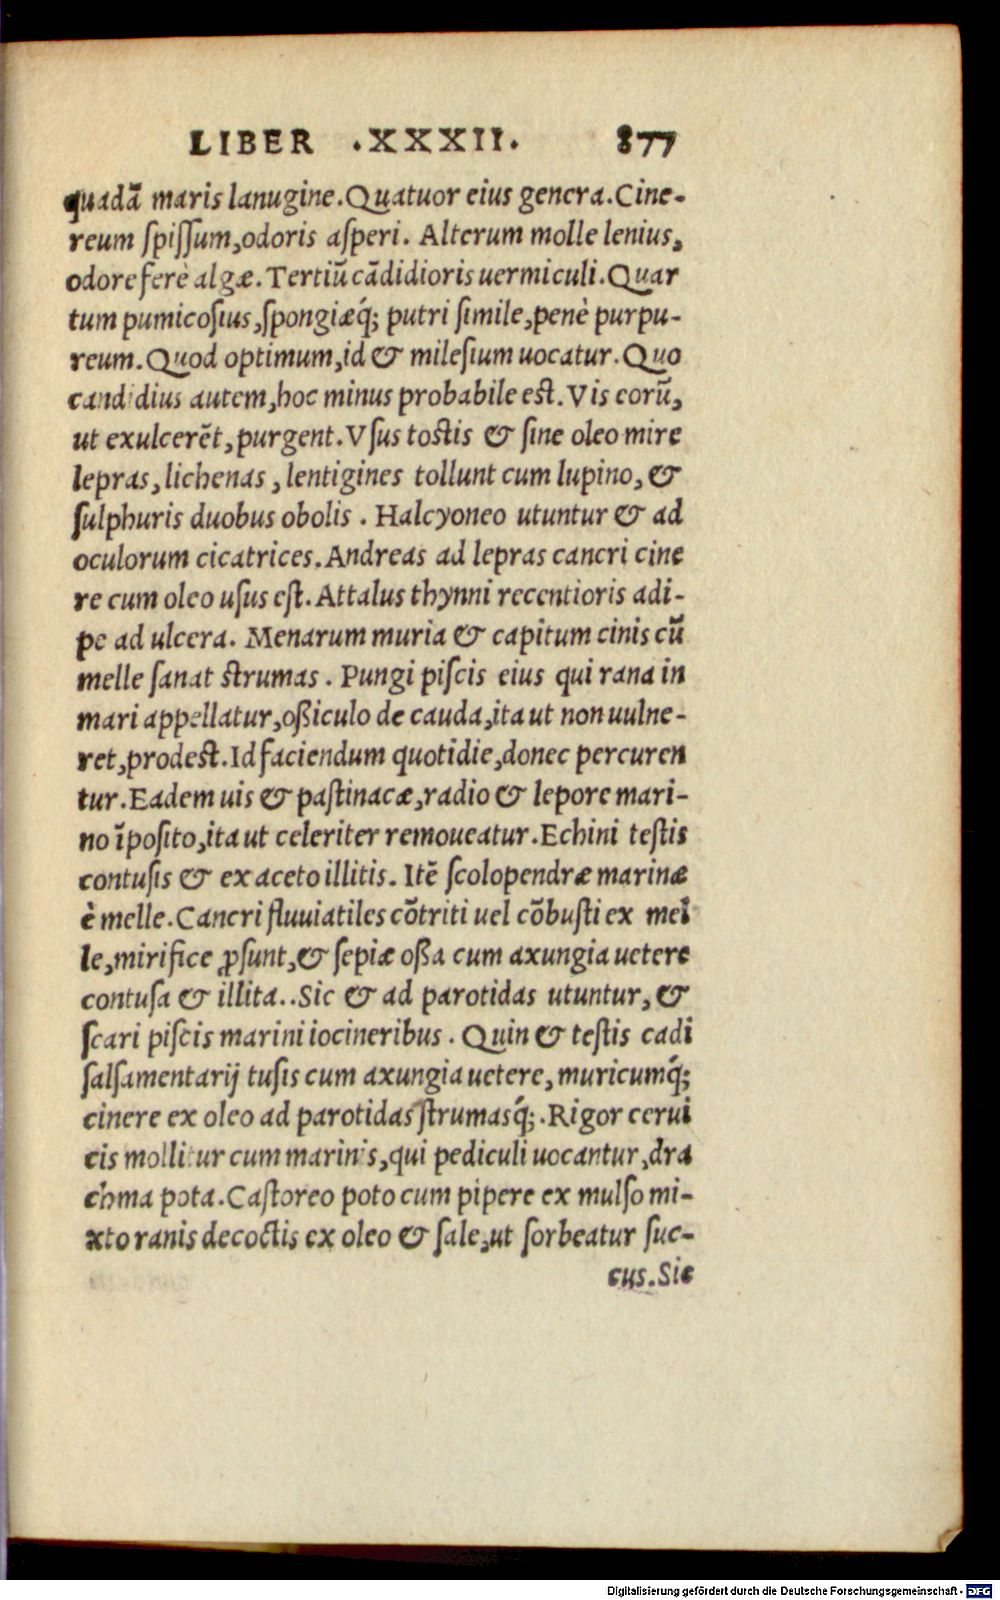 LIBER .XXXII. 877
quadā maris lanugine. Quatuor eius genera. Cine-
reum ſpiſſum, odoris aſperi. Alterum molle lenius,
odore ferè algæ. Tertiū cādidioris uermiculi. Quar
tum pumicoſius, ſpongiæq́; putri ſimile, penè purpu-
reum. Quod optimum, id & mileſium uocatur. Quo
candidius autem, hoc minus probabile eſt. Vis eorū,
ut exulcerēt, purgent. Vſus toſtis & ſine oleo mire
lepras, lichenas, lentigines tollunt cum lupino, &
ſulphuris duobus obolis. Halcyoneo utuntur & ad
oculorum cicatrices. Andreas ad lepras cancri cine
re cum oleo uſus eſt. Attalus thynni recentioris adi-
pe ad ulcera. Menarum muria & capitum cinis cū
melle ſanat ſtrumas. Pungi piſcis eius qui rana in
mari appellatur, oßiculo de cauda, ita ut non uulne-
ret, prodeſt. Id faciendum quotidie, donec percuren
tur. Eadem uis & paſtinacæ, radio & lepore mari-
no īpoſito, ita ut celeriter remoueatur. Echini teſtis
contuſis & ex aceto illitis. Itē ſcolopendræ marinæ
è melle. Cancri fluuiatiles cōtriti uel cōbuſti ex mel
le, mirifice ꝓſunt, & ſepiæ oßa cum axungia uetere
contuſa & illita.. Sic & ad parotidas utuntur, &
ſcari piſcis marini iocineribus. Quin & teſtis cadi
ſalſamentarij tuſis cum axungia uetere, muricumq́;
cinere ex oleo ad parotidas ſtrumasq́;. Rigor cerui
cis mollitur cum marinis, qui pediculi uocantur, dra
chma pota. Caſtoreo poto cum pipere ex mulſo mi-
xto ranis decoctis ex oleo & ſale, ut ſorbeatur ſuc-
cus. Sic
Digitalisierung gefördert durch die Deutsche Forschungsgemeinschaft - DFG